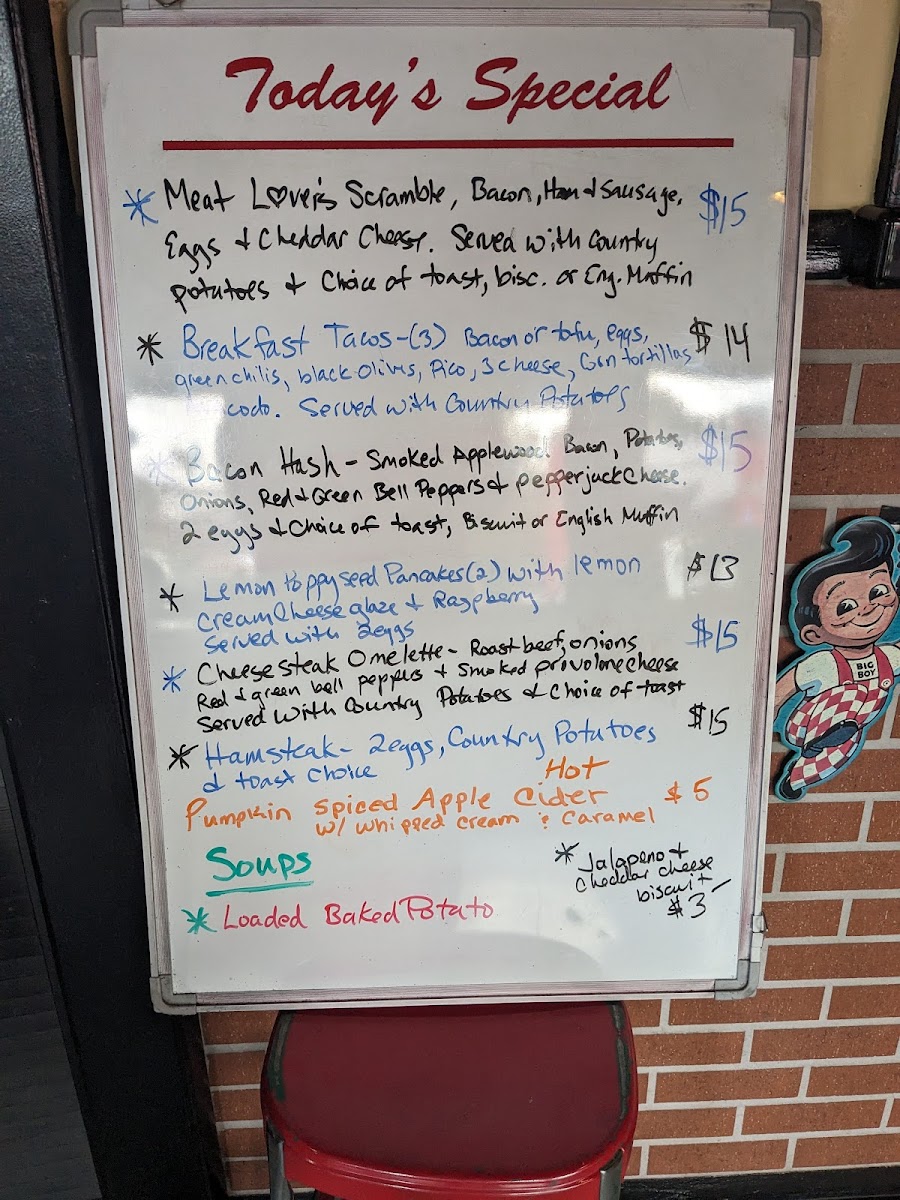 Today's Special
* Meat L♥ver's Scramble, Bacon, Ham & Sausage, $15
Eggs & Cheddar Cheese. Served with Country
potatoes & Choice of toast, bisc. or Eng. Muffin
* Breakfast Tacos-(3) Bacon or tofu, eggs, $14
green chilis, black olives, Pico, 3 cheese, Corn tortillas
Served with Country Potatoes
* Bacon Hash - Smoked Applewood Bacon, Potatoes, $15
Onions, Red & Green Bell Peppers & pepperjack Cheese.
2 eggs & Choice of toast, Biscuit or English Muffin
* Lemon Poppyseed Pancakes (2) with lemon $13
cream Cheese glaze & Raspberry
Served with 2eggs
* Cheesesteak Omelette - Roast beef, onions $15
Red & green bell peppers & Smoked provolone cheese
Served with Country Potatoes & Choice of toast
* Hamsteak - 2eggs, Country Potatoes $15
& toast Choice
Hot
Pumpkin Spiced Apple Cider $5
w/ whipped cream & Caramel
Soups
* Loaded Baked Potato
* Jalapeno &
cheddar cheese
biscuit
$3
BIG
BOY